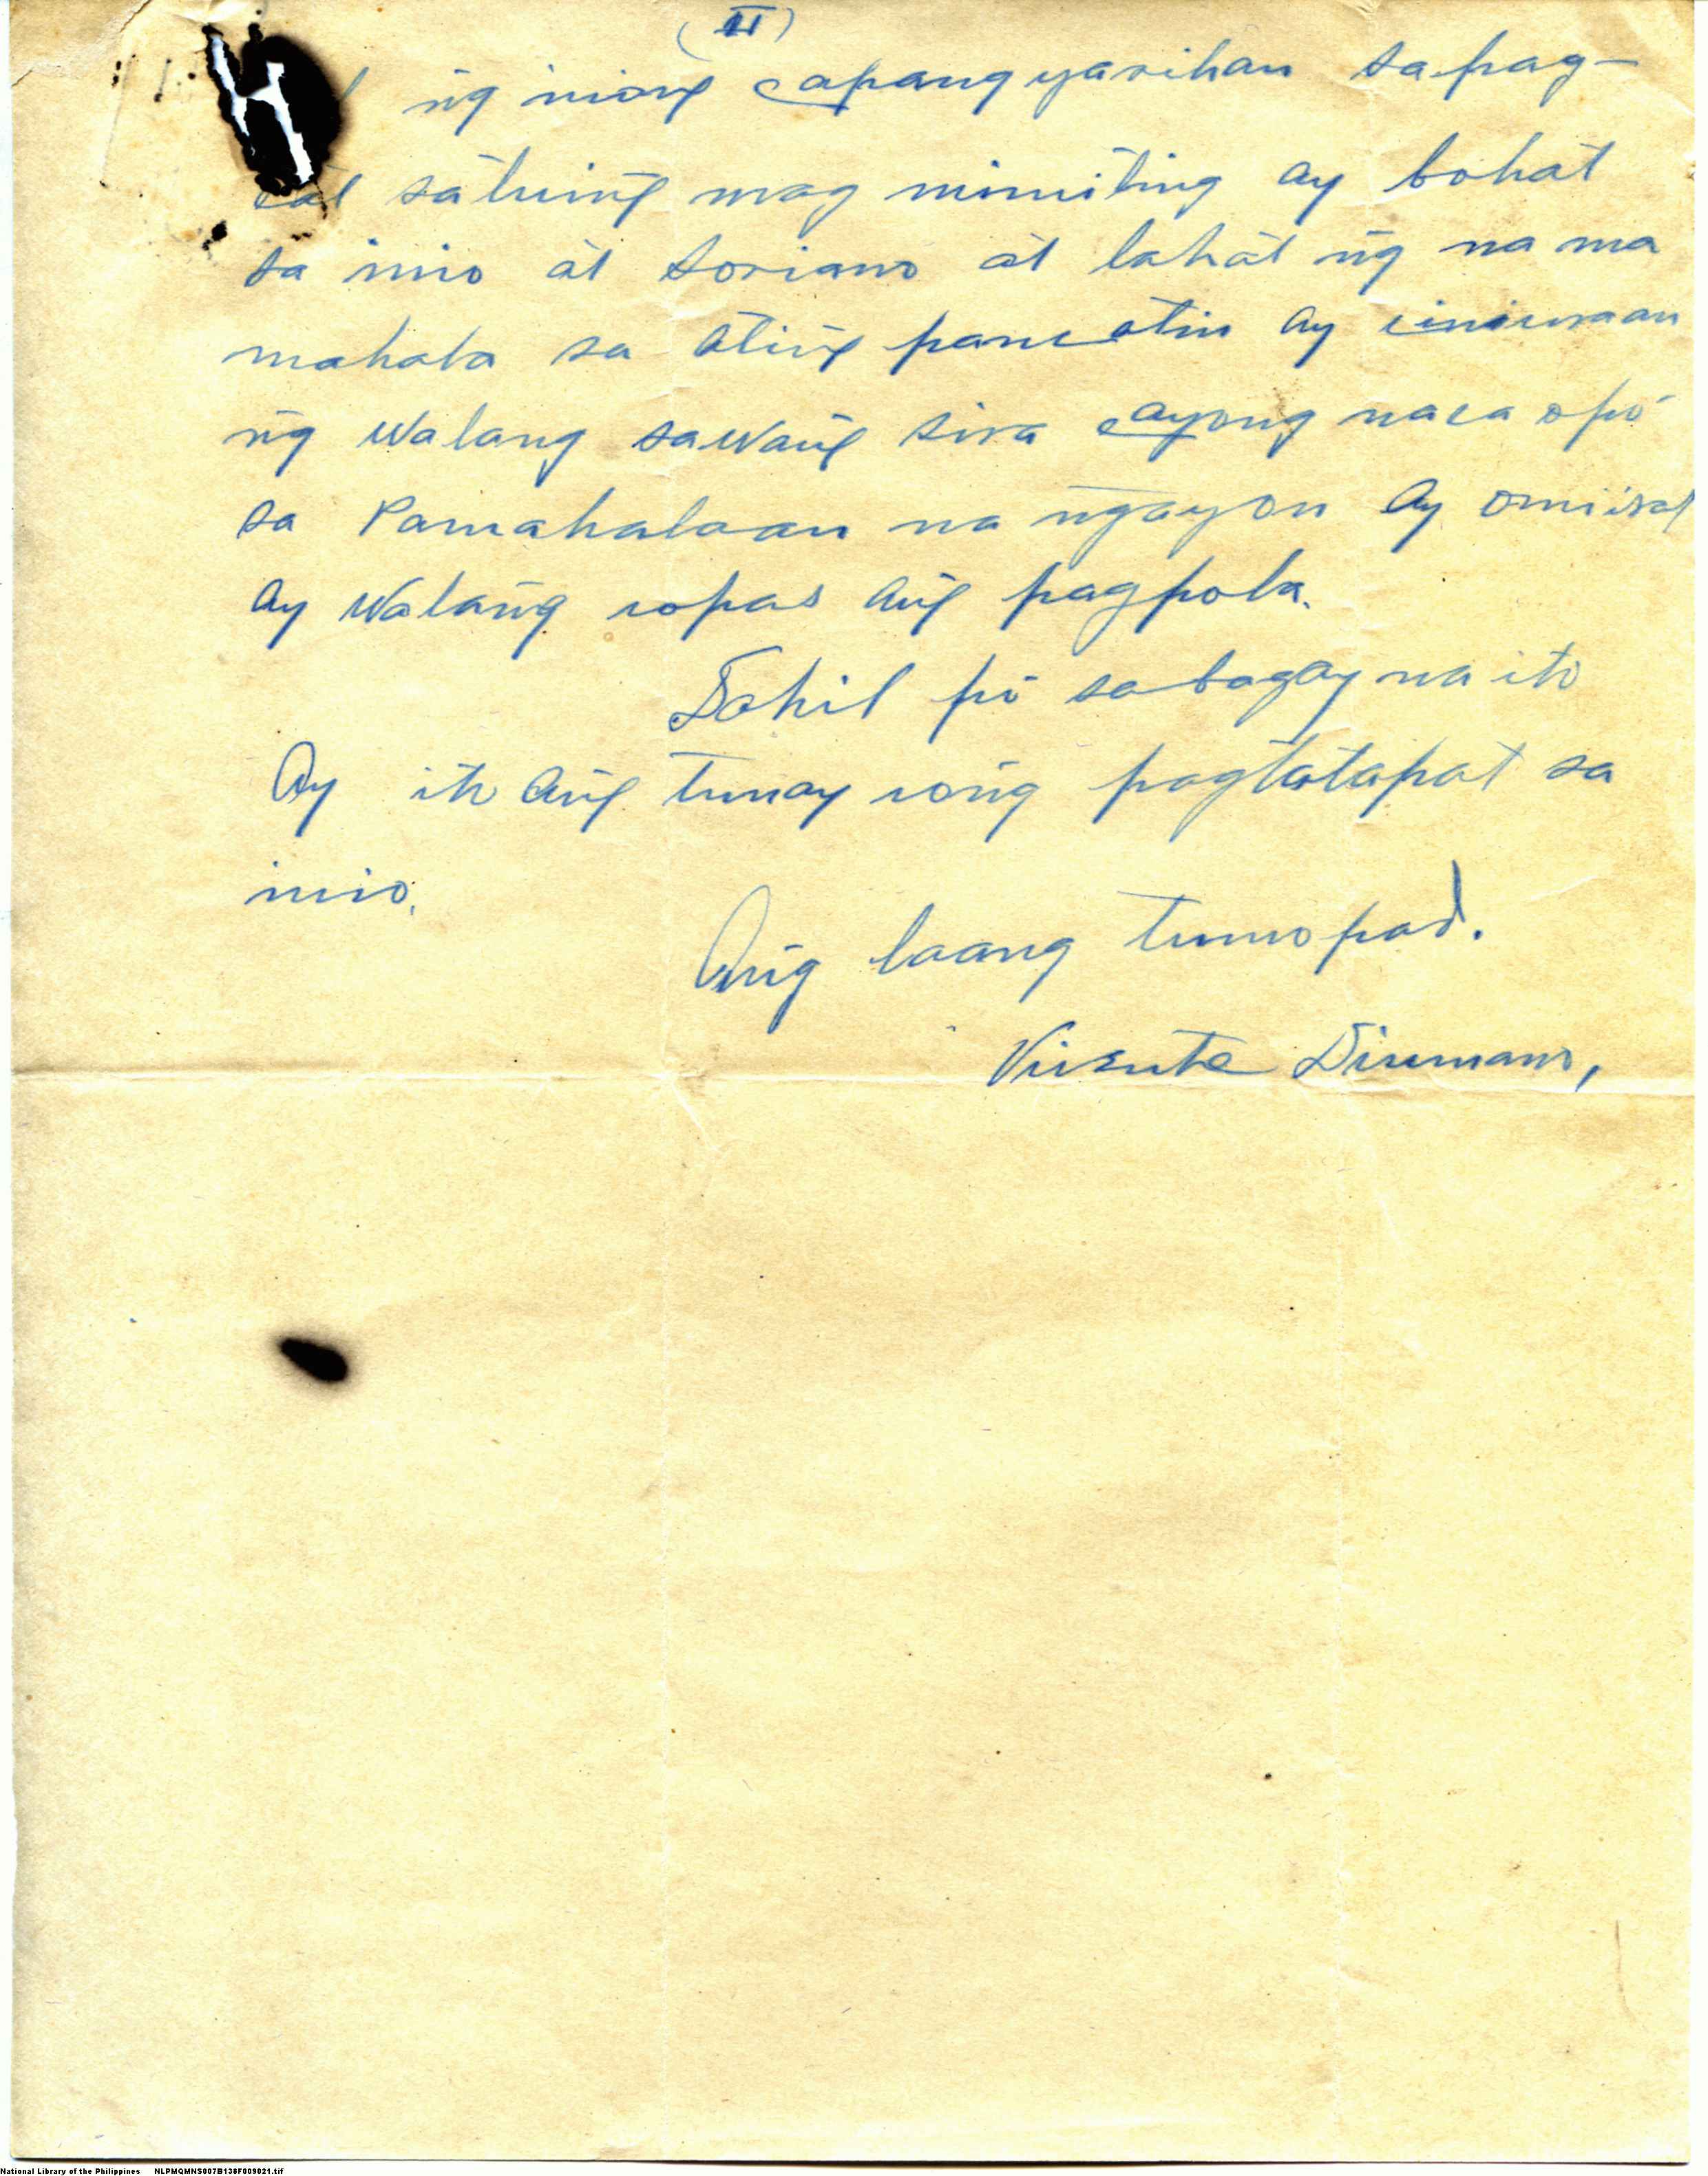 (II)
ng iniong capangyarihan sa pag-
cat satuing mag mimiting ay bohat
sa inio at Soriano at lahat ng na ma
mahala sa ating pancatin ay
ng walang sawang sira cayong naca opo
sa Pamahalaan na ngayon ay omiiral
ay walang copas ang pagpola.
Dahil po sa bagay na ito
Ay ito ang tunay cong pagtatapat sa
inio.
Ang laang tumopad.
Vicente Dimano,
National Library of the Philippines NLPMQMNS007B138F009021.tif